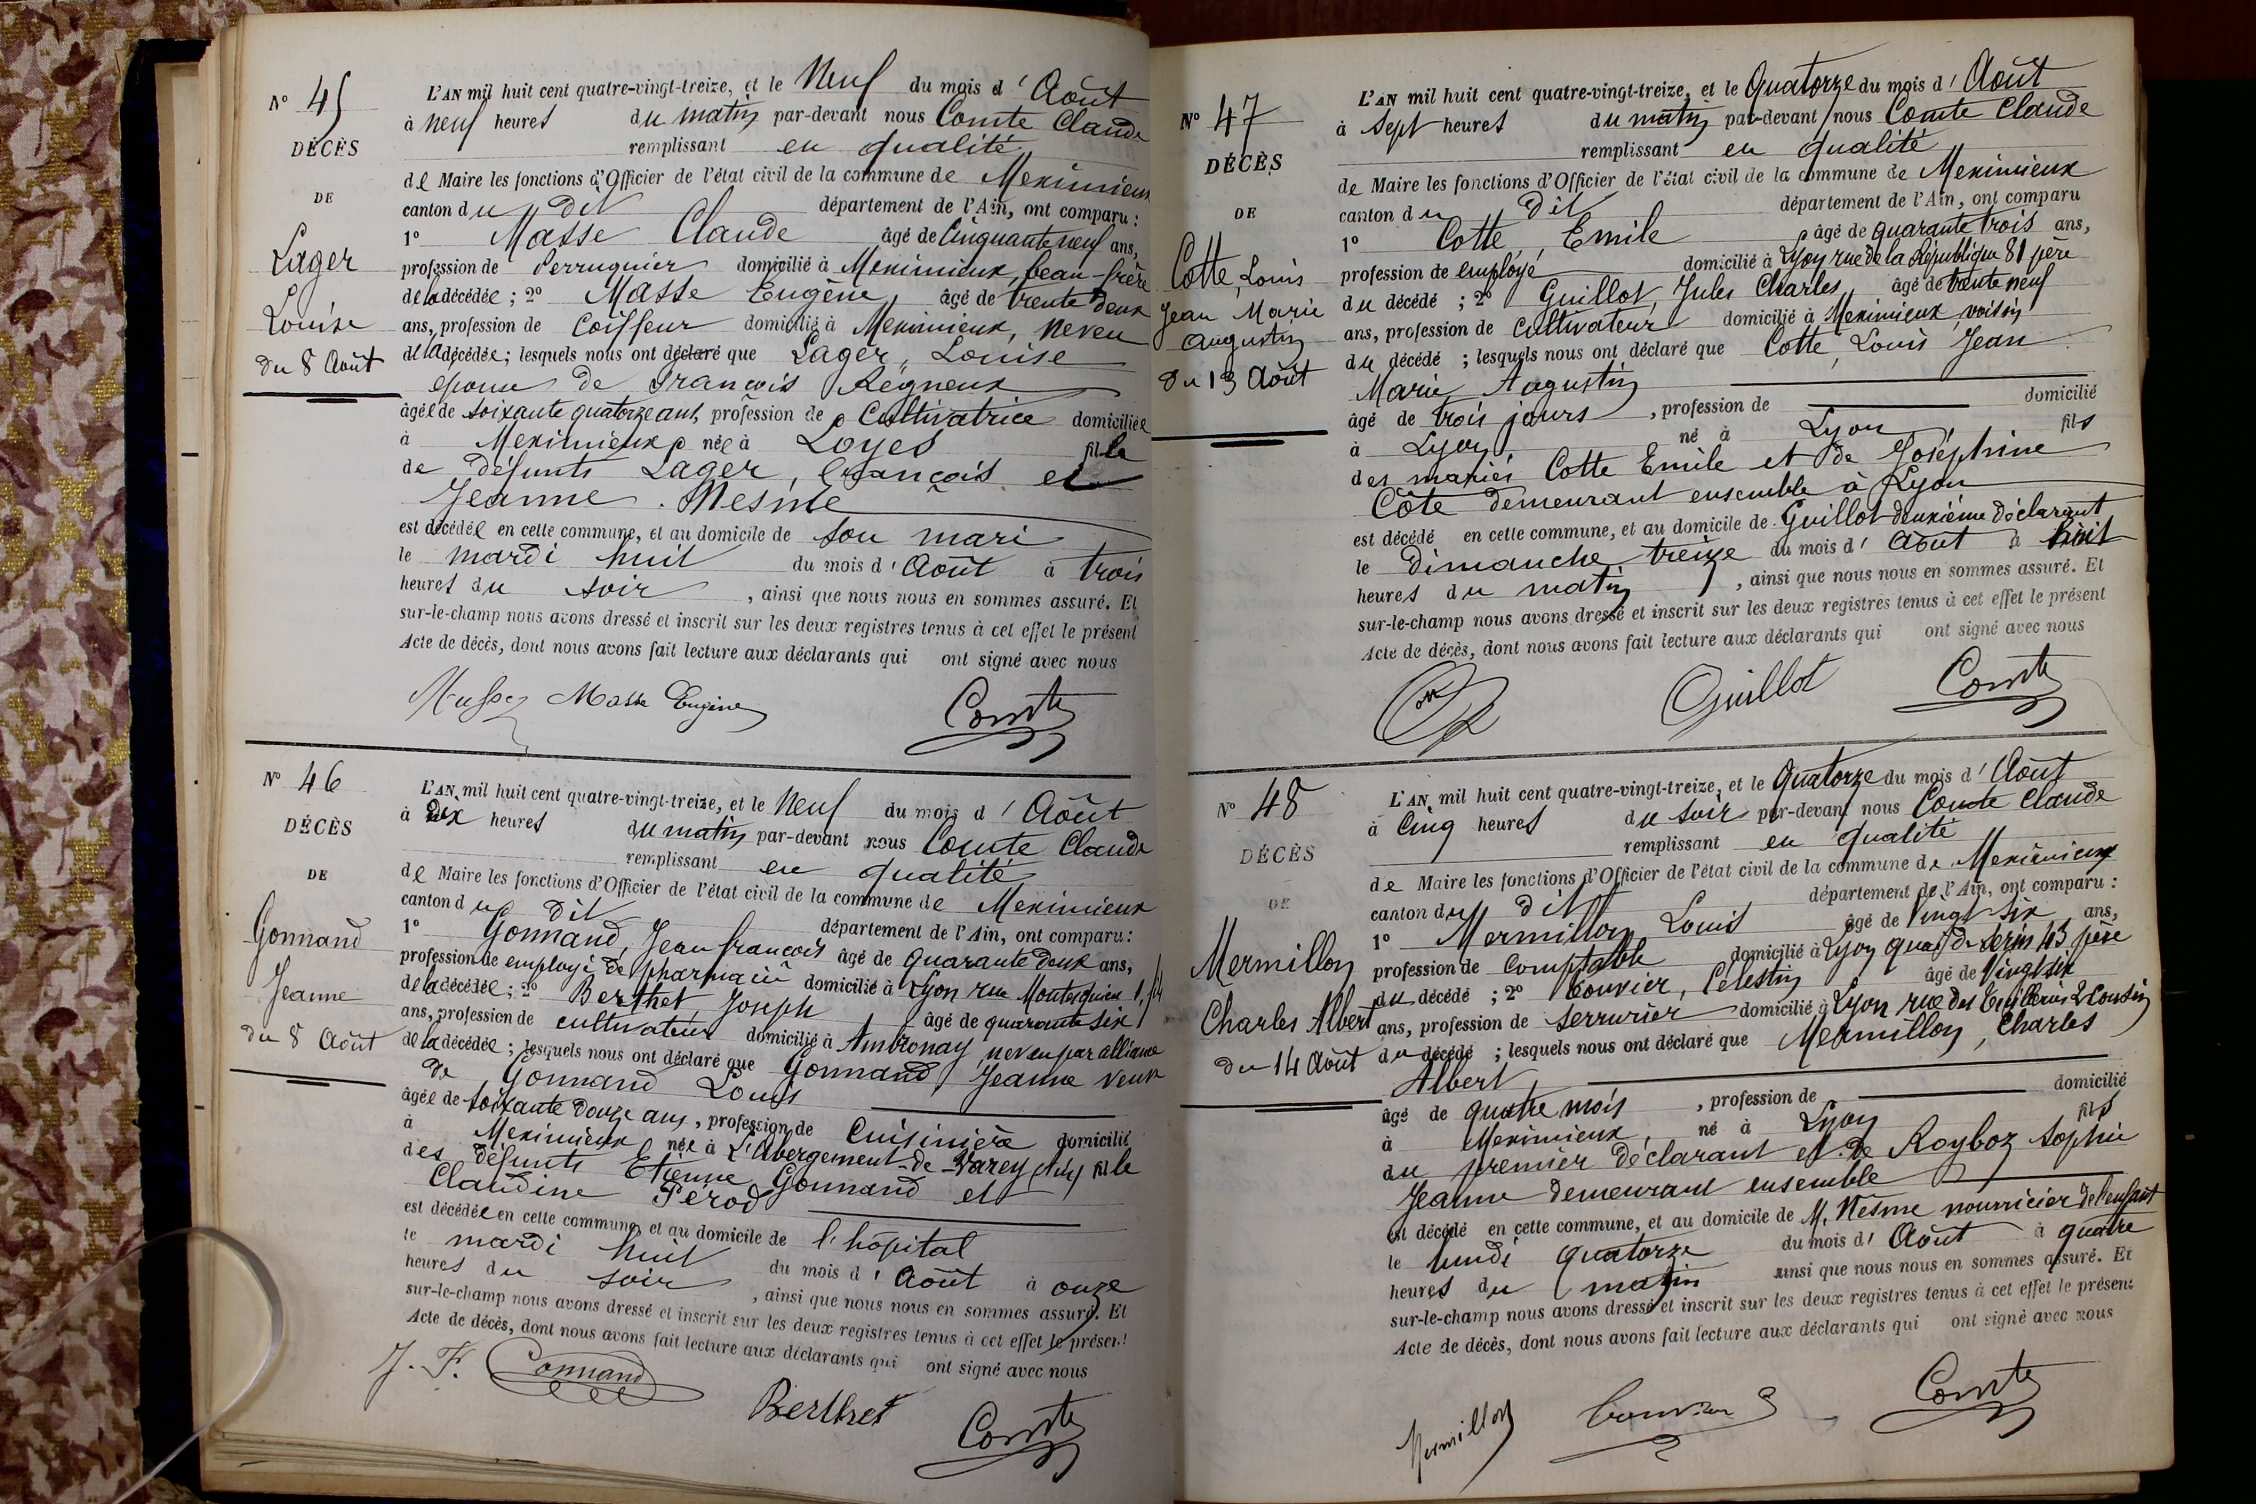 N° 45
DÉCÈS
DE
Lager
Louise
du 8 Août
L'AN mil huit cent quatre-vingt-treize, et le Neuf du mois d' Août
à neuf heures du matin par-devant nous Comte Claude
remplissant en qualité
de Maire les fonctions d'Officier de l'état civil de la commune de Meximieux
canton du dit département de l'Ain, ont comparu :
1° Masse Claude âgé de Cinquante neuf ans,
profession de Perruquier domicilié à Meximieux, beau-frère
de la décédée ; 2° Masse Eugène, âgé de trente deux
ans, profession de Coiffeur domicilié à Meximieux, neveu
de la décédée ; lesquels nous ont déclaré que Lager, Louise
épouse de François Régneux
âgée de soixante quatorze ans, profession de Cultivatrice domiciliée
à Meximieux née à Loyes fille
de défunts Lager, François et
Jeanne Mesme
est décédée en cette commune, et au domicile de son mari
le mardi huit du mois d' Août à trois
heures du soir , ainsi que nous nous en sommes assuré. Et
sur-le-champ nous avons dressé et inscrit sur les deux registres tenus à cet effet le présent
Acte de décès, dont nous avons fait lecture aux déclarants qui ont signé avec nous
Masse Eugène Comte
N° 46
DÉCÈS
DE
Gonnand
Jeanne
du 8 Août
L'AN mil huit cent quatre-vingt-treize, et le Neuf du mois d' Août
à Dix heures du matin par-devant nous Comte Claude
remplissant en qualité
de Maire les fonctions d'Officier de l'état civil de la commune de Meximieux
canton du dit département de l'Ain, ont comparu :
1° Gonnand, Jean François âgé de quarante deux ans,
profession de employé de pharmacie domicilié à Lyon rue Montesquieu 1, fils
de la décédée ; 2° Berthet Joseph âgé de quarante six
ans, profession de cultivateur domicilié à Ambronay neveu par alliance
de la décédée ; lesquels nous ont déclaré que Gonnand, Jeanne veuve
de Gonnand Louis
âgée de soixante douze ans, profession de Cuisinière domicilié
à Meximieux née à L'Abergement-de-Varey (Ain) fille
des défunts Etienne Gonnand et
Claudine Pérod
est décédée en cette commune, et au domicile de l'hôpital
le mardi huit du mois d' Août à onze
heures du soir , ainsi que nous nous en sommes assuré. Et
sur-le-champ nous avons dressé et inscrit sur les deux registres tenus à cet effet le présent
Acte de décès, dont nous avons fait lecture aux déclarants qui ont signé avec nous
J. F. Gonnand Berthet Comte
N° 47
DÉCÈS
DE
Cotte, Louis
Jean Marie
Augustin
du 13 Août
L'AN mil huit cent quatre-vingt-treize, et le Quatorze du mois d' Août
à Sept heures du matin par-devant nous Comte Claude
remplissant en qualité
de Maire les fonctions d'Officier de l'état civil de la commune de Meximieux
canton du dit département de l'Ain, ont comparu
1° Cotte, Emile âgé de quarante trois ans,
profession de employé domicilié à Lyon rue de la République 81 père
du décédé ; 2° Guillot, Jules Charles, âgé de trente neuf
ans, profession de Cultivateur domicilié à Meximieux, voisin
du décédé ; lesquels nous ont déclaré que Cotte, Louis Jean
Marie, Augustin
âgé de trois jours , profession de domicilié
à Lyon né à Lyon fils
des mariés Cotte Emile et de Joséphine
Côte demeurant ensemble à Lyon
est décédé en cette commune, et au domicile de Guillot deuxième déclarant
le Dimanche treize du mois d' Août à huit
heures du matin , ainsi que nous nous en sommes assuré. Et
sur-le-champ nous avons dressé et inscrit sur les deux registres tenus à cet effet le présent
Acte de décès, dont nous avons fait lecture aux déclarants qui ont signé avec nous
Guillot Comte
N° 48
DÉCÈS
DE
Mermillon
Charles Albert
du 14 Août
L'AN mil huit cent quatre-vingt-treize, et le Quatorze du mois d' Août
à Cinq heures du soir par-devant nous Comte Claude
remplissant en qualité
de Maire les fonctions d'Officier de l'état civil de la commune de Meximieux
canton du dit département de l'Ain, ont comparu :
1° Mermillon Louis âgé de vingt six ans,
profession de Comptable domicilié à Lyon quai de Serin 43 père
du décédé ; 2° Bouvier, Célestin âgé de Vingt six
ans, profession de serrurier domicilié à Lyon rue des Tuilleries 2 Cousin
du décédé ; lesquels nous ont déclaré que Mermillon, Charles
Albert
âgé de quatre mois , profession de domicilié
à Meximieux né à Lyon fils
du premier déclarant et de Royboz Sophie
Jeanne demeurant ensemble
est décédé en cette commune, et au domicile de M. Nesme nourricier de l'enfant
le lundi quatorze du mois d' Août à quatre
heures du matin ainsi que nous nous en sommes assuré. Et
sur-le-champ nous avons dressé et inscrit sur les deux registres tenus à cet effet le présent
Acte de décès, dont nous avons fait lecture aux déclarants qui ont signé avec nous
Mermillon Bouvier Comte